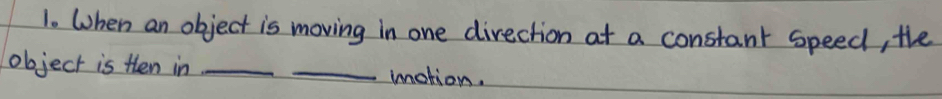 1. When an object is moving in one direction at a constant speed, the
object is then in ____ ____ motion.